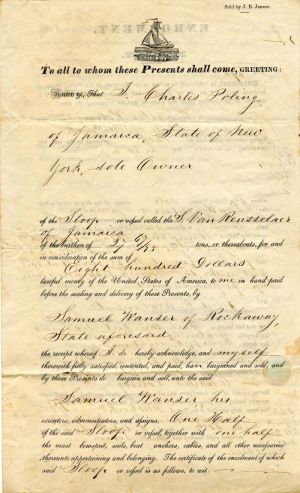 Sold by J. B. Jansen.
ENROLMENT.
To all to whom these Presents shall come, GREETING:
Know ye, That I Charles Poling
of Jamaica, State of New
York, sole Owner
of the Sloop or vessel called the S. Van Rensselaer
of Jamaica
of the burthen of 27 tons, or thereabouts, for and
in consideration of the sum of
Eight hundred Dollars
lawful money of the United States of America, to me in hand paid
before the sealing and delivery of these Presents, by
Samuel Wanser of Rockaway
State aforesaid
the receipt whereof I do hereby acknowledge, and myself
therewith fully satisfied, contented, and paid, have bargained and sold, and
by these Presents do bargain and sell, unto the said
Samuel Wanser his
executors, administrators, and assigns, One Half
of the said Sloop or vessel, together with one half
the mast bowsprit, sails, boat anchors, cables, and all other necessaries
thereunto appertaining and belonging. The certificate of the enrolment of which
said Sloop or vessel is as follows, to wit